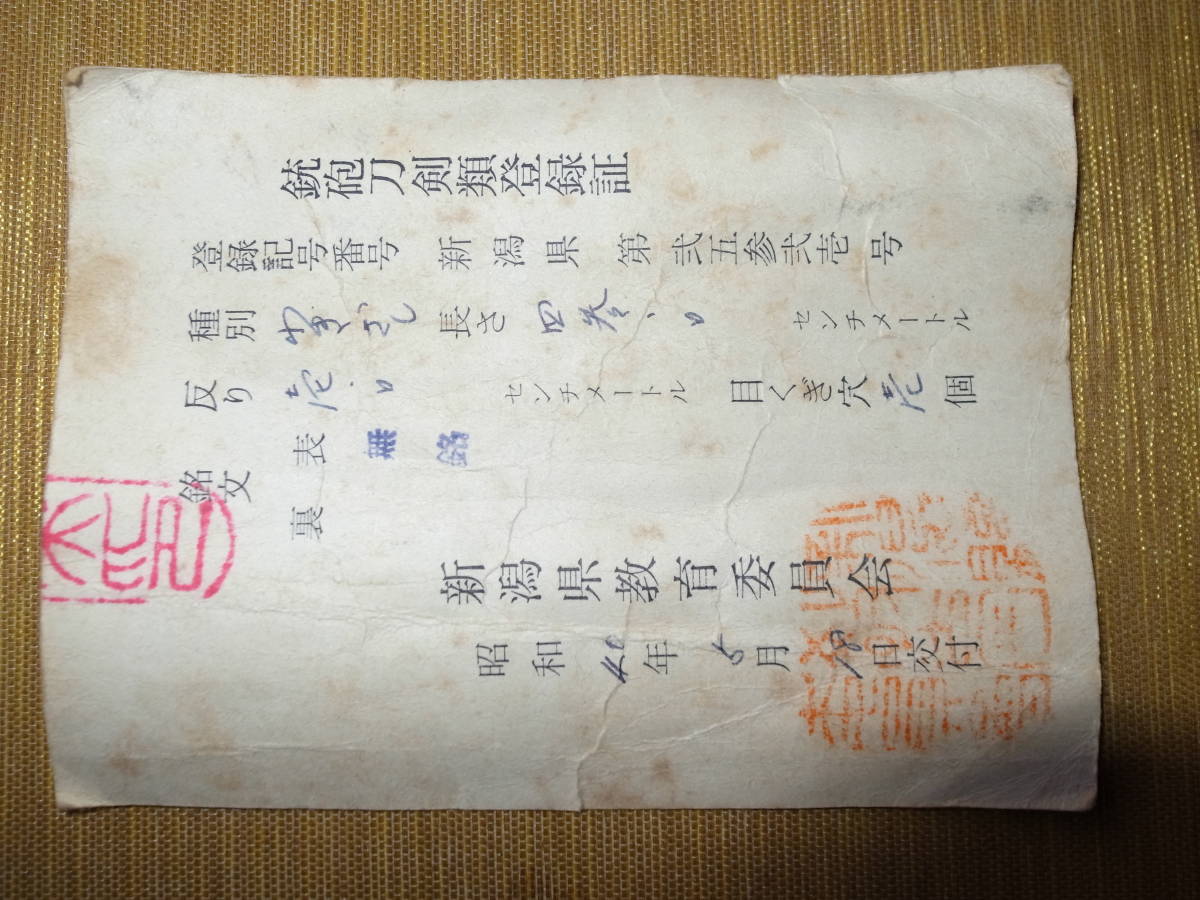 銃砲刀剣類登録証
登録記号番号 新潟県 第弐五参弐壱号
種別 わきざし 長さ 四参.口 センチメートル
反り 壱.口 センチメートル 目くぎ穴 壱 個
銘文 表 無銘
裏
新潟県教育委員会
昭和40年5月18日交付